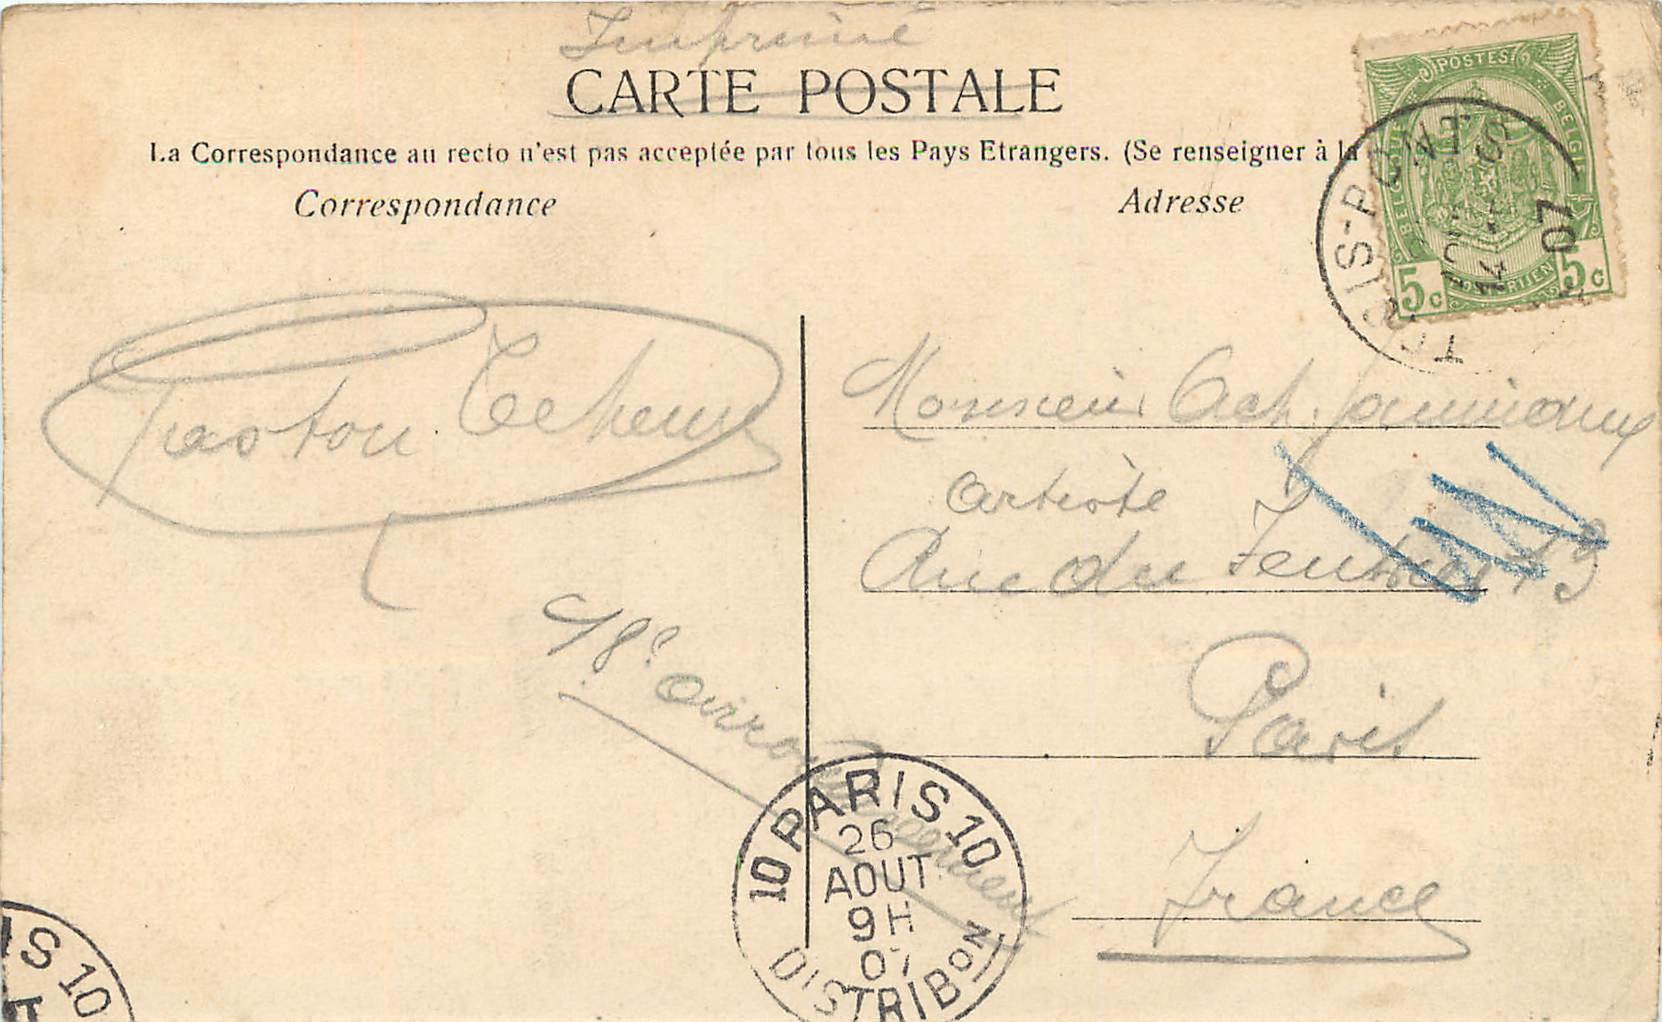 Imprimé
CARTE POSTALE
La Correspondance au recto n'est pas acceptée par tous les Pays Etrangers. (Se renseigner à la
Correspondance
Adresse
POSTES
BELGIQUE
BELGIE
5 c
5 c
POSTERIJEN
TROIS-PONTS
07
Gaston
Monsieur Ach.
artiste
Rue du 13
Paris
France
18e arrondissement
10 PARIS 10
26
AOUT
9H
07
DISTRIBON
IS 10